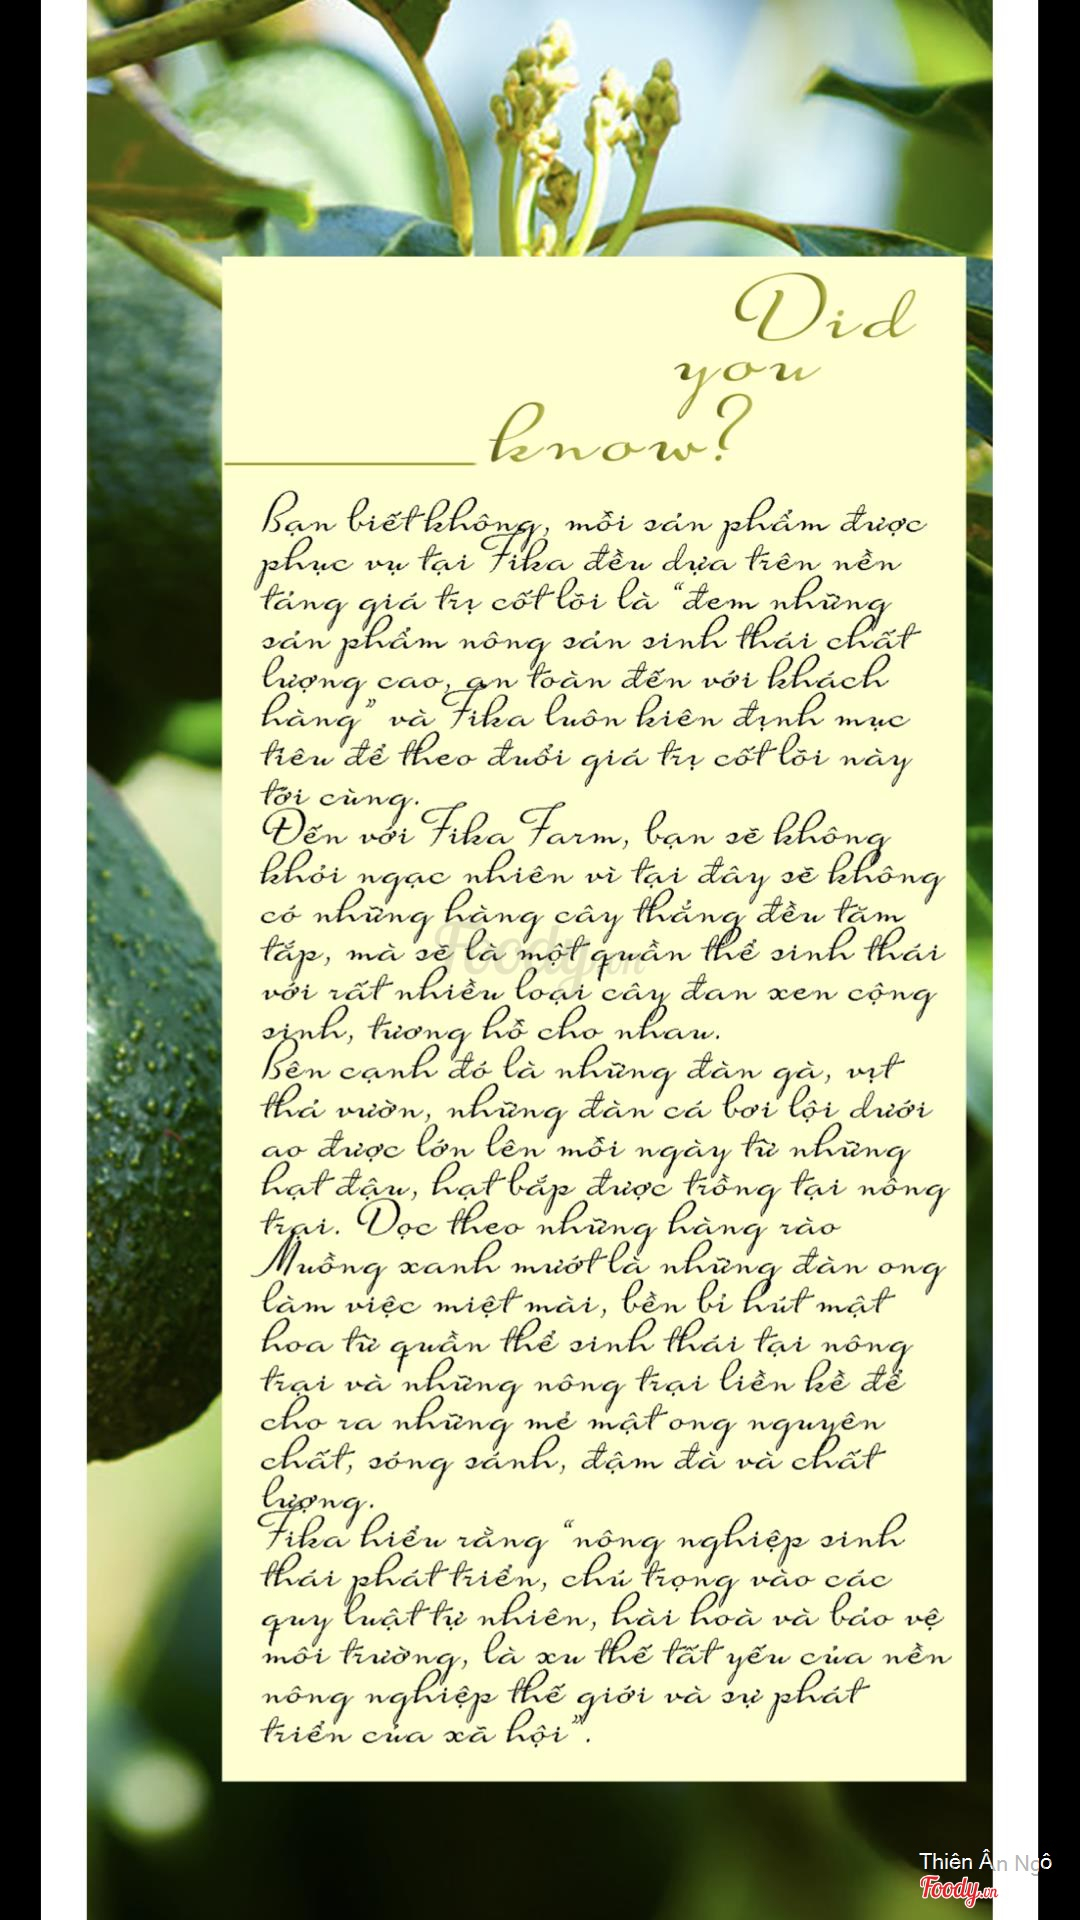 Did
you
know?
Bạn biết không, mỗi sản phẩm được
phục vụ tại Fika đều dựa trên nền
tảng giá trị cốt lõi là “đem những
sản phẩm nông sản sinh thái chất
lượng cao, an toàn đến với khách
hàng” và Fika luôn kiên định mục
tiêu để theo đuổi giá trị cốt lõi này
tới cùng.
Đến với Fika Farm, bạn sẽ không
khỏi ngạc nhiên vì tại đây sẽ không
có những hàng cây thẳng đều tăm
tắp, mà sẽ là một quần thể sinh thái
với rất nhiều loại cây đan xen cộng
sinh, tương hỗ cho nhau.
Bên cạnh đó là những đàn gà, vịt
thả vườn, những đàn cá bơi lội dưới
ao được lớn lên mỗi ngày từ những
hạt đậu, hạt bắp được trồng tại nông
trại. Dọc theo những hàng rào
Muồng xanh mướt là những đàn ong
làm việc miệt mài, bền bỉ hút mật
hoa từ quần thể sinh thái tại nông
trại và những nông trại liền kề để
cho ra những mẻ mật ong nguyên
chất, sóng sánh, đậm đà và chất
lượng.
Fika hiểu rằng “nông nghiệp sinh
thái phát triển, chú trọng vào các
quy luật tự nhiên, hài hoà và bảo vệ
môi trường, là xu thế tất yếu của nền
nông nghiệp thế giới và sự phát
triển của xã hội”.
Foody.vn
Thiên Ân Ngô
Foody.vn